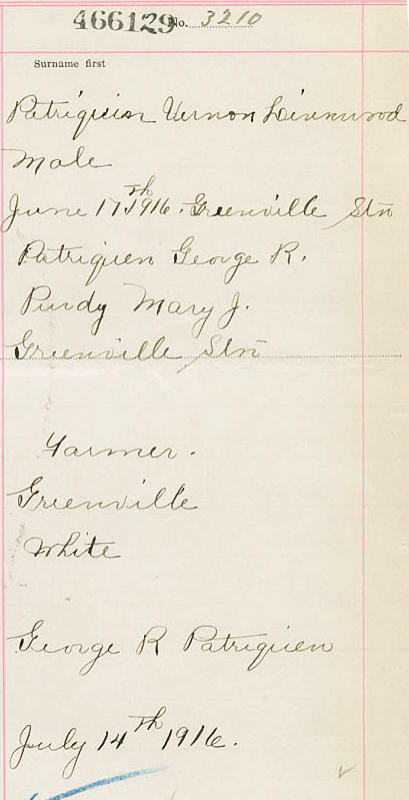 466129 No. 3210
Surname first
Patriquin Vernon Linnwood
Male
June 17th 1916. Greenville Stn
Patriquen George R.
Purdy Mary J.
Greenville Stn
Farmer.
Greenville
White
George R Patriquen
July 14th 1916.